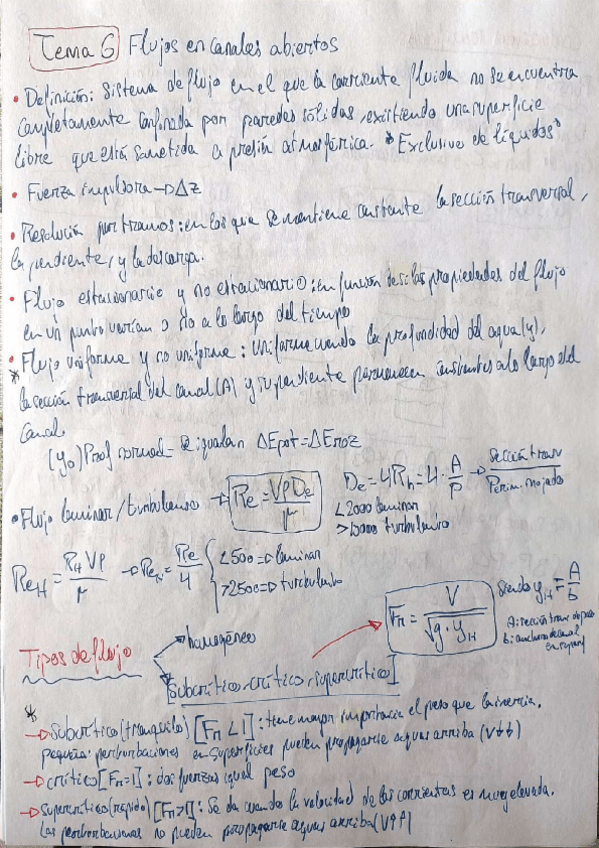 Tema 6 Flujos en canales abiertos
• Definición: Sistema de flujo en el que la corriente fluida no se encuentra
completamente confinada por paredes sólidas, existiendo una superficie
libre que está sometida a presión atmosférica. *Exclusivo de líquidos*
• Fuerza impulsora → Δz
• Resolución por tramos: en los que se mantiene constante la sección transversal,
la pendiente, y la descarga.
• Flujo estacionario y no estacionario: en función de si las propiedades del flujo
en un punto varían o no a lo largo del tiempo
* • Flujo uniforme y no uniforme: Uniforme cuando la profundidad del agua (y),
la sección transversal del canal (A) y su pendiente permanecen constantes a lo largo del
canal.
(y₀) Prof normal = Se igualan ΔEpot = ΔEroz
• Flujo laminar/turbulento → Re = VρDe/μ De = 4Rh = 4 · A/P → Sección transv / Perím. mojado
<2000 laminar
> turbulento
ReH = RH Vρ/μ → ReH = Re/4 { <500 => laminar
>2500 => turbulento
Fr = V/√g · yH Siendo yH = A/b
A: sección transv
b: anchura de canal
en superf
Tipos de flujo → homogéneo
[subcrítico, crítico, supercrítico]
*
→ Subcrítico (tranquilo) [Fr < 1]: tiene mayor importancia el peso que la inercia.
Pequeñas perturbaciones en superficies pueden propagarse aguas arriba (V↓↓)
→ crítico [Fr=1]: dos fuerzas igual peso
→ Supercrítico (rápido) [Fr>1]: Se da cuando la velocidad de las corrientes es muy elevada.
Las perturbaciones no pueden propagarse aguas arriba (V↑↑)